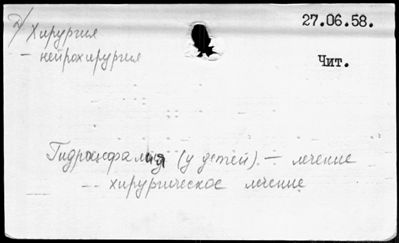 27.06.58.
Хирургия
— нейрохирургия
Чит.
Гидроцефалия (у детей). — лечение
— хирургическое лечение